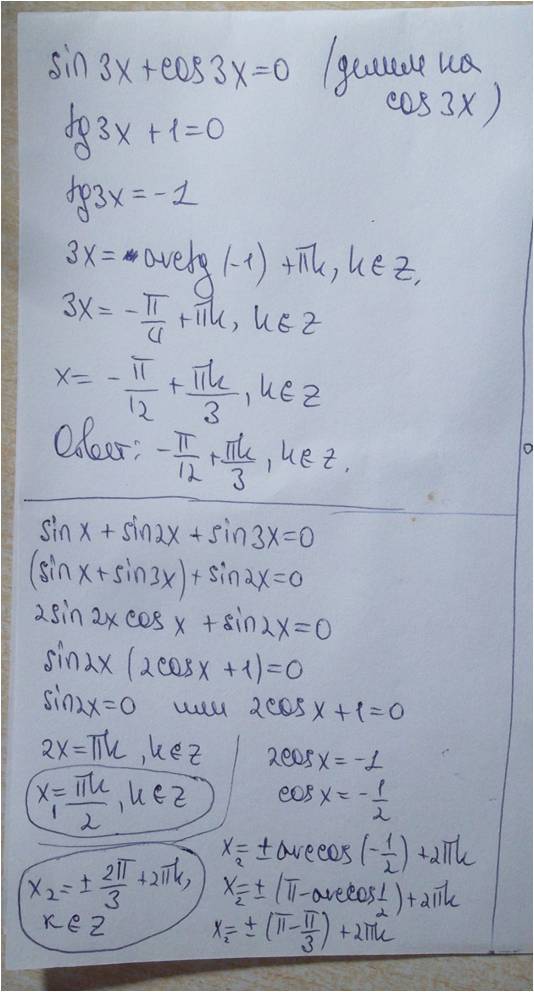 sin 3x + cos 3x = 0 (делим на
cos 3x)
tg 3x + 1 = 0
tg 3x = -1
3x = arctg (-1) + πk, k ∈ Z.
3x = -π/4 + πk, k ∈ Z
x = -π/12 + πk/3, k ∈ Z
Ответ: -π/12 + πk/3, k ∈ Z.
sin x + sin 2x + sin 3x = 0
(sin x + sin 3x) + sin 2x = 0
2 sin 2x cos x + sin 2x = 0
sin 2x (2 cos x + 1) = 0
sin 2x = 0 или 2 cos x + 1 = 0
2x = πk, k ∈ Z
x₁ = πk/2, k ∈ Z
2 cos x = -1
cos x = -1/2
x₂ = ± arccos (-1/2) + 2πk
x₂ = ± (π - arccos 1/2) + 2πk
x₂ = ± (π - π/3) + 2πk
x₂ = ± 2π/3 + 2πk,
k ∈ Z